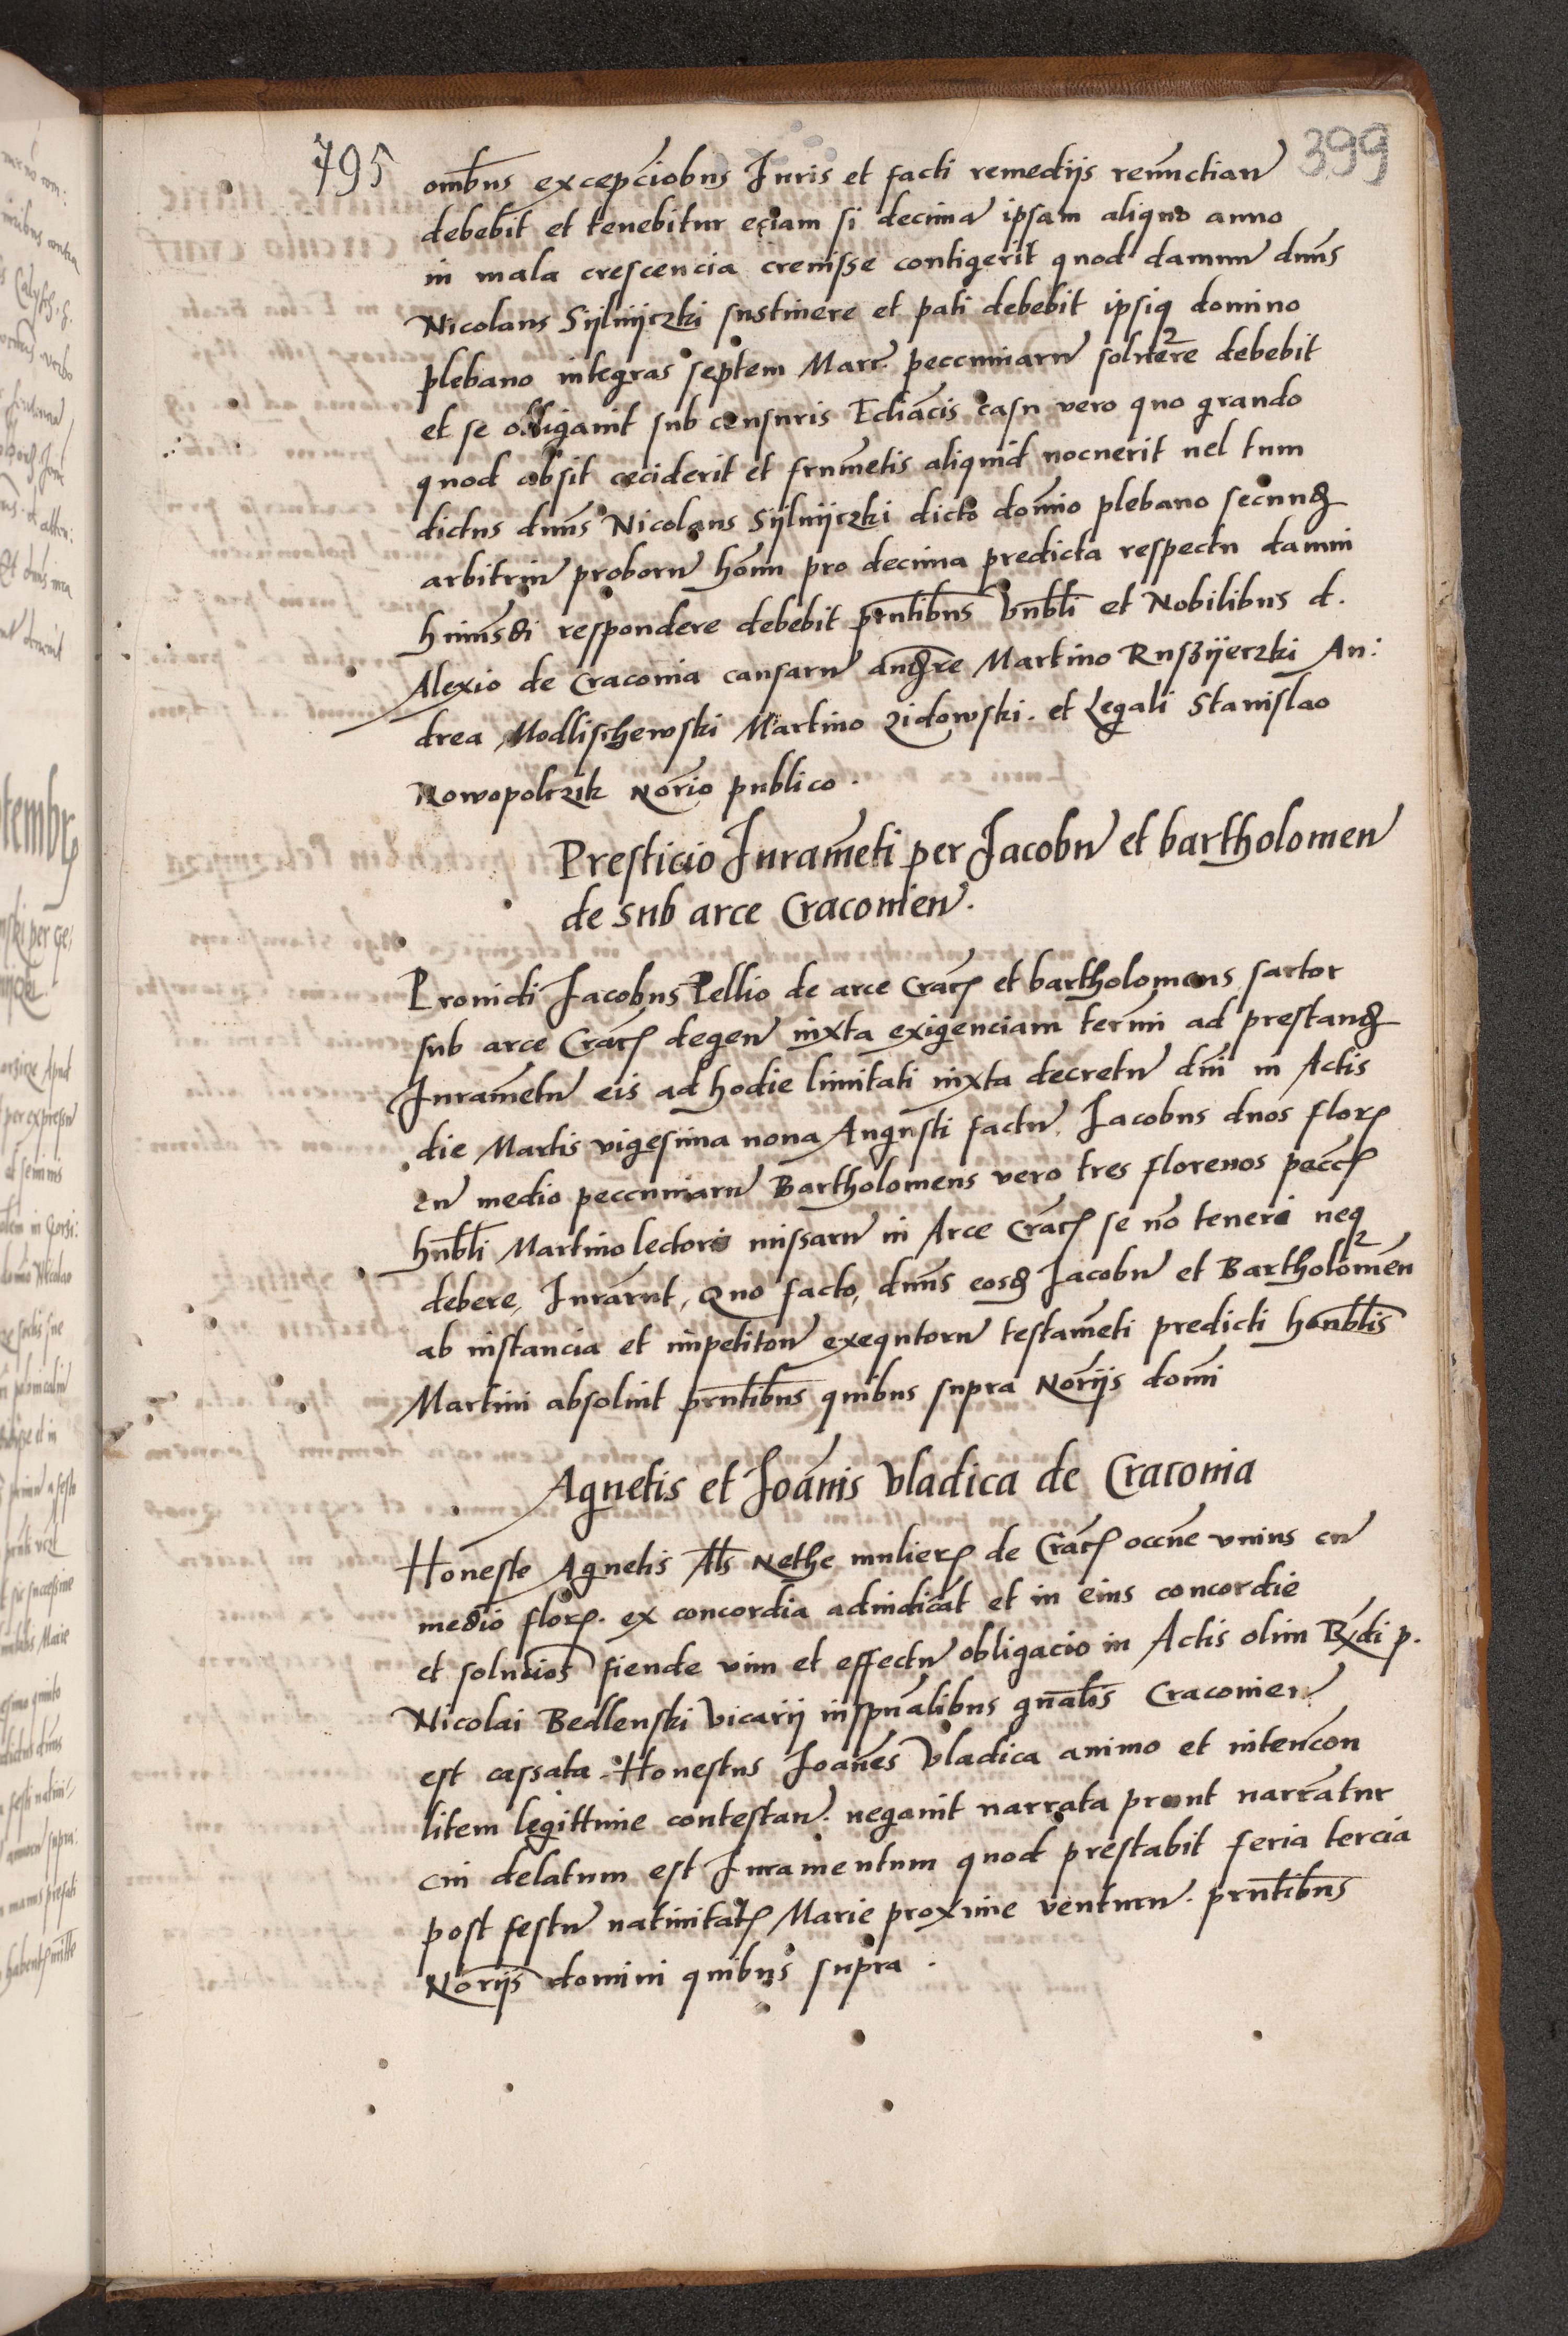 795
399
om̄bus excepc̄iobus Juris et facti remedijs renūctian̄
debebit et tenebitur eciam si decima ipsam aliquo anno
in mala crescencia crevisse contigerit quod damnū dn̄us
Nicolaus Sijlnijczki sustinere et pati debebit ipsiq domino
plebano integras septem Marc̄. peccuniarū soluere debebit
et se obligauit sub censuris Eccl̄iacis casu vero quo grando
quod absit ceciderit et frumētis aliquid nocuerit uel tum
dictus dn̄us Nicolaus Sijlnijczki dicto domīo plebano secund̄
arbitriū proborū hom̄ pro decima predicta respectu damni
huiusmōi respondere debebit pr̄ntibus vn̄bli et Nobilibus d.
Alexio de Cracouia causarū and̄re Martino Ruszijeczki An:
drea Modlischewski Martino zidowski. et Legali Stanislao
Nowopolczik Nor̄io publico.
Presticio Juramēti per Jacobū et bartholomeū
de sub arce Cracouien̄.
Prouidi Jacobus Pellio de arce Crac̄ et bartholomeus sartor
sub arce Crac̄ degen̄ iuxta exigenciam termī ad prestand̄
Juramētū eis ad hodie limitati iuxta decretū dn̄i in Actis
die Martis vigesima nona Augusti factū. Jacobus duos flor̄
cū medio peccuniarū Bartholomeus vero tres florenos pecc̄
hn̄bli Martino lectori missarū in Arce Crac̄ se nō teneri neq
debere, Jurarūt, Quo facto, dn̄us eosd̄ Jacobū et Bartholomeū
ab instancia et impetitōn exequtorū testamēti predicti honb̄lis
Martini absoluit pr̄ntibus quibus supra Nor̄ijs domī
Agnetis et Joānis Vladica de Cracouia
Honeste Agnetis Al̄s Nethe mulier̄ de Crac̄ occn̄e vnius cū
medio flor̄. ex concordia adiudicāt et in eius concordie
et soluc̄ios fiende vim et effectū obligacio in Actis olim R̄xdi p.
Nicolai Bedlenski Vicarij inspūalibus gn̄alis Cracouien̄
est cassata. Honestus Joānes Vladica animo et intenc̄on
litem legittime contestan̄. negauit narrata prout narrātur
cui delatum est Juramentum quod prestabit feria tercia
post festū natiuitat̄ Marie proxime venturū. pr̄ntibus
Nor̄ijs domini quibus supra.